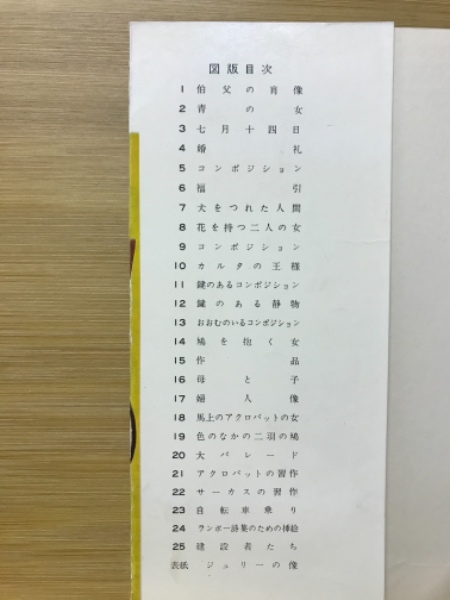 図版目次
1 伯父の肖像
2 青の女
3 七月十四日
4 婚礼
5 コンポジション
6 福引
7 犬をつれた人間
8 花を持つ二人の女
9 コンポジション
10 カルタの王様
11 鍵のあるコンポジション
12 鍵のある静物
13 おおむのいるコンポジション
14 鳩を抱く女
15 作品
16 母と子
17 婦人像
18 馬上のアクロバットの女
19 色のなかの二羽の鳩
20 大パレード
21 アクロバットの習作
22 サーカスの習作
23 自転車乗り
24 ランボー詩集のための挿絵
25 建設者たち
表紙 ジュリーの像